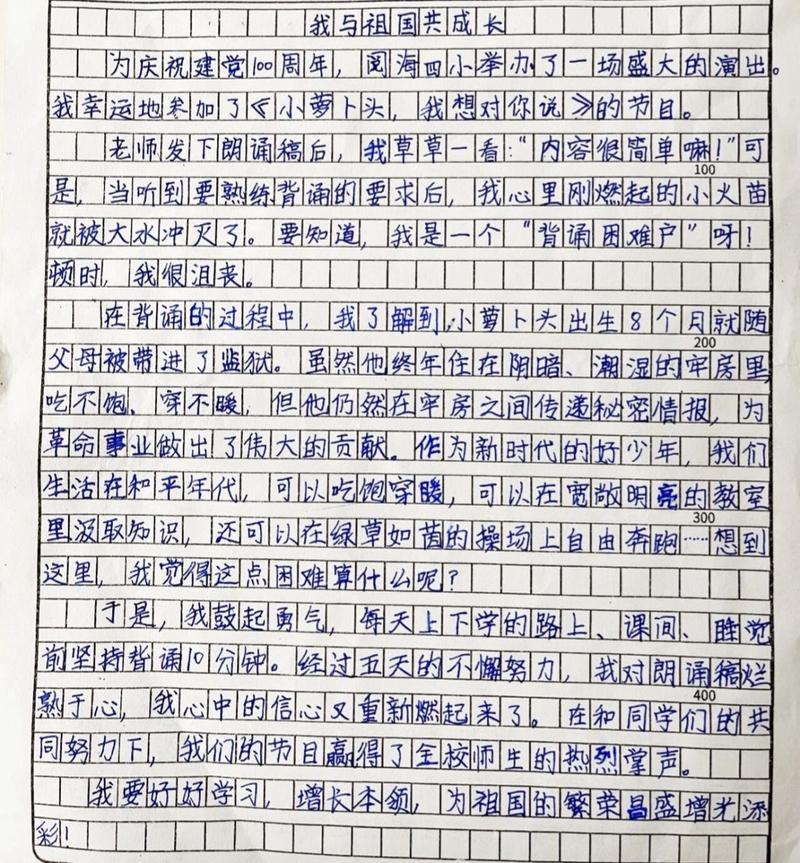 我与祖国共成长
为庆祝建党100周年，阅海四小举办了一场盛大的演出。
我幸运地参加了《小萝卜头，我想对你说》的节目。
老师发下朗诵稿后，我草草一看：“内容很简单嘛！”可
100
是，当听到要熟练背诵的要求后，我心里刚燃起的小火苗
就被大水冲灭了。要知道，我是一个“背诵困难户”呀！
顿时，我很沮丧。
在背诵的过程中，我了解到，小萝卜头出生8个月就随
200
父母被带进了监狱。虽然他终年住在阴暗、潮湿的牢房里，
吃不饱、穿不暖，但他仍然在牢房之间传递秘密情报，为
革命事业做出了伟大的贡献。作为新时代的好少年，我们
生活在和平年代，可以吃饱穿暖，可以在宽敞明亮的教室
300
里汲取知识，还可以在绿草如茵的操场上自由奔跑……想到
这里，我觉得这点困难算什么呢？
于是，我鼓起勇气，每天上下学的路上、课间、睡觉
前坚持背诵10分钟。经过五天的不懈努力，我对朗诵稿烂
400
熟于心，我心中的信心又重新燃起来了。在和同学们的共
同努力下，我们的节目赢得了全校师生的热烈掌声。
我要好好学习，增长本领，为祖国的繁荣昌盛增光添
彩！